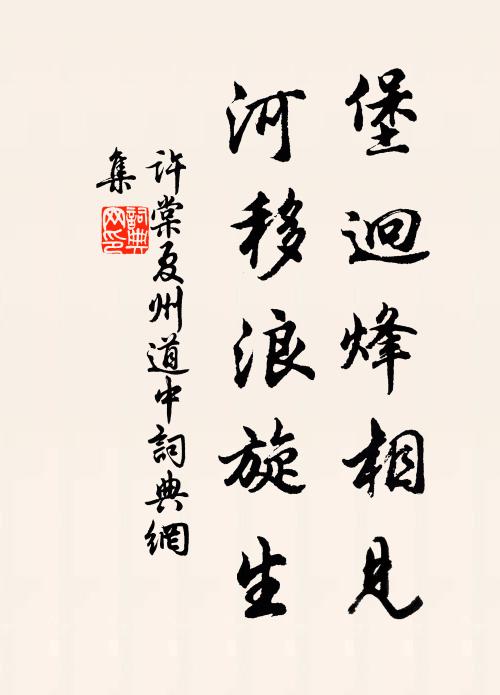 堡迴烽相見
河移浪旋生
許棠夏州道中詞典網
集
詞典網印